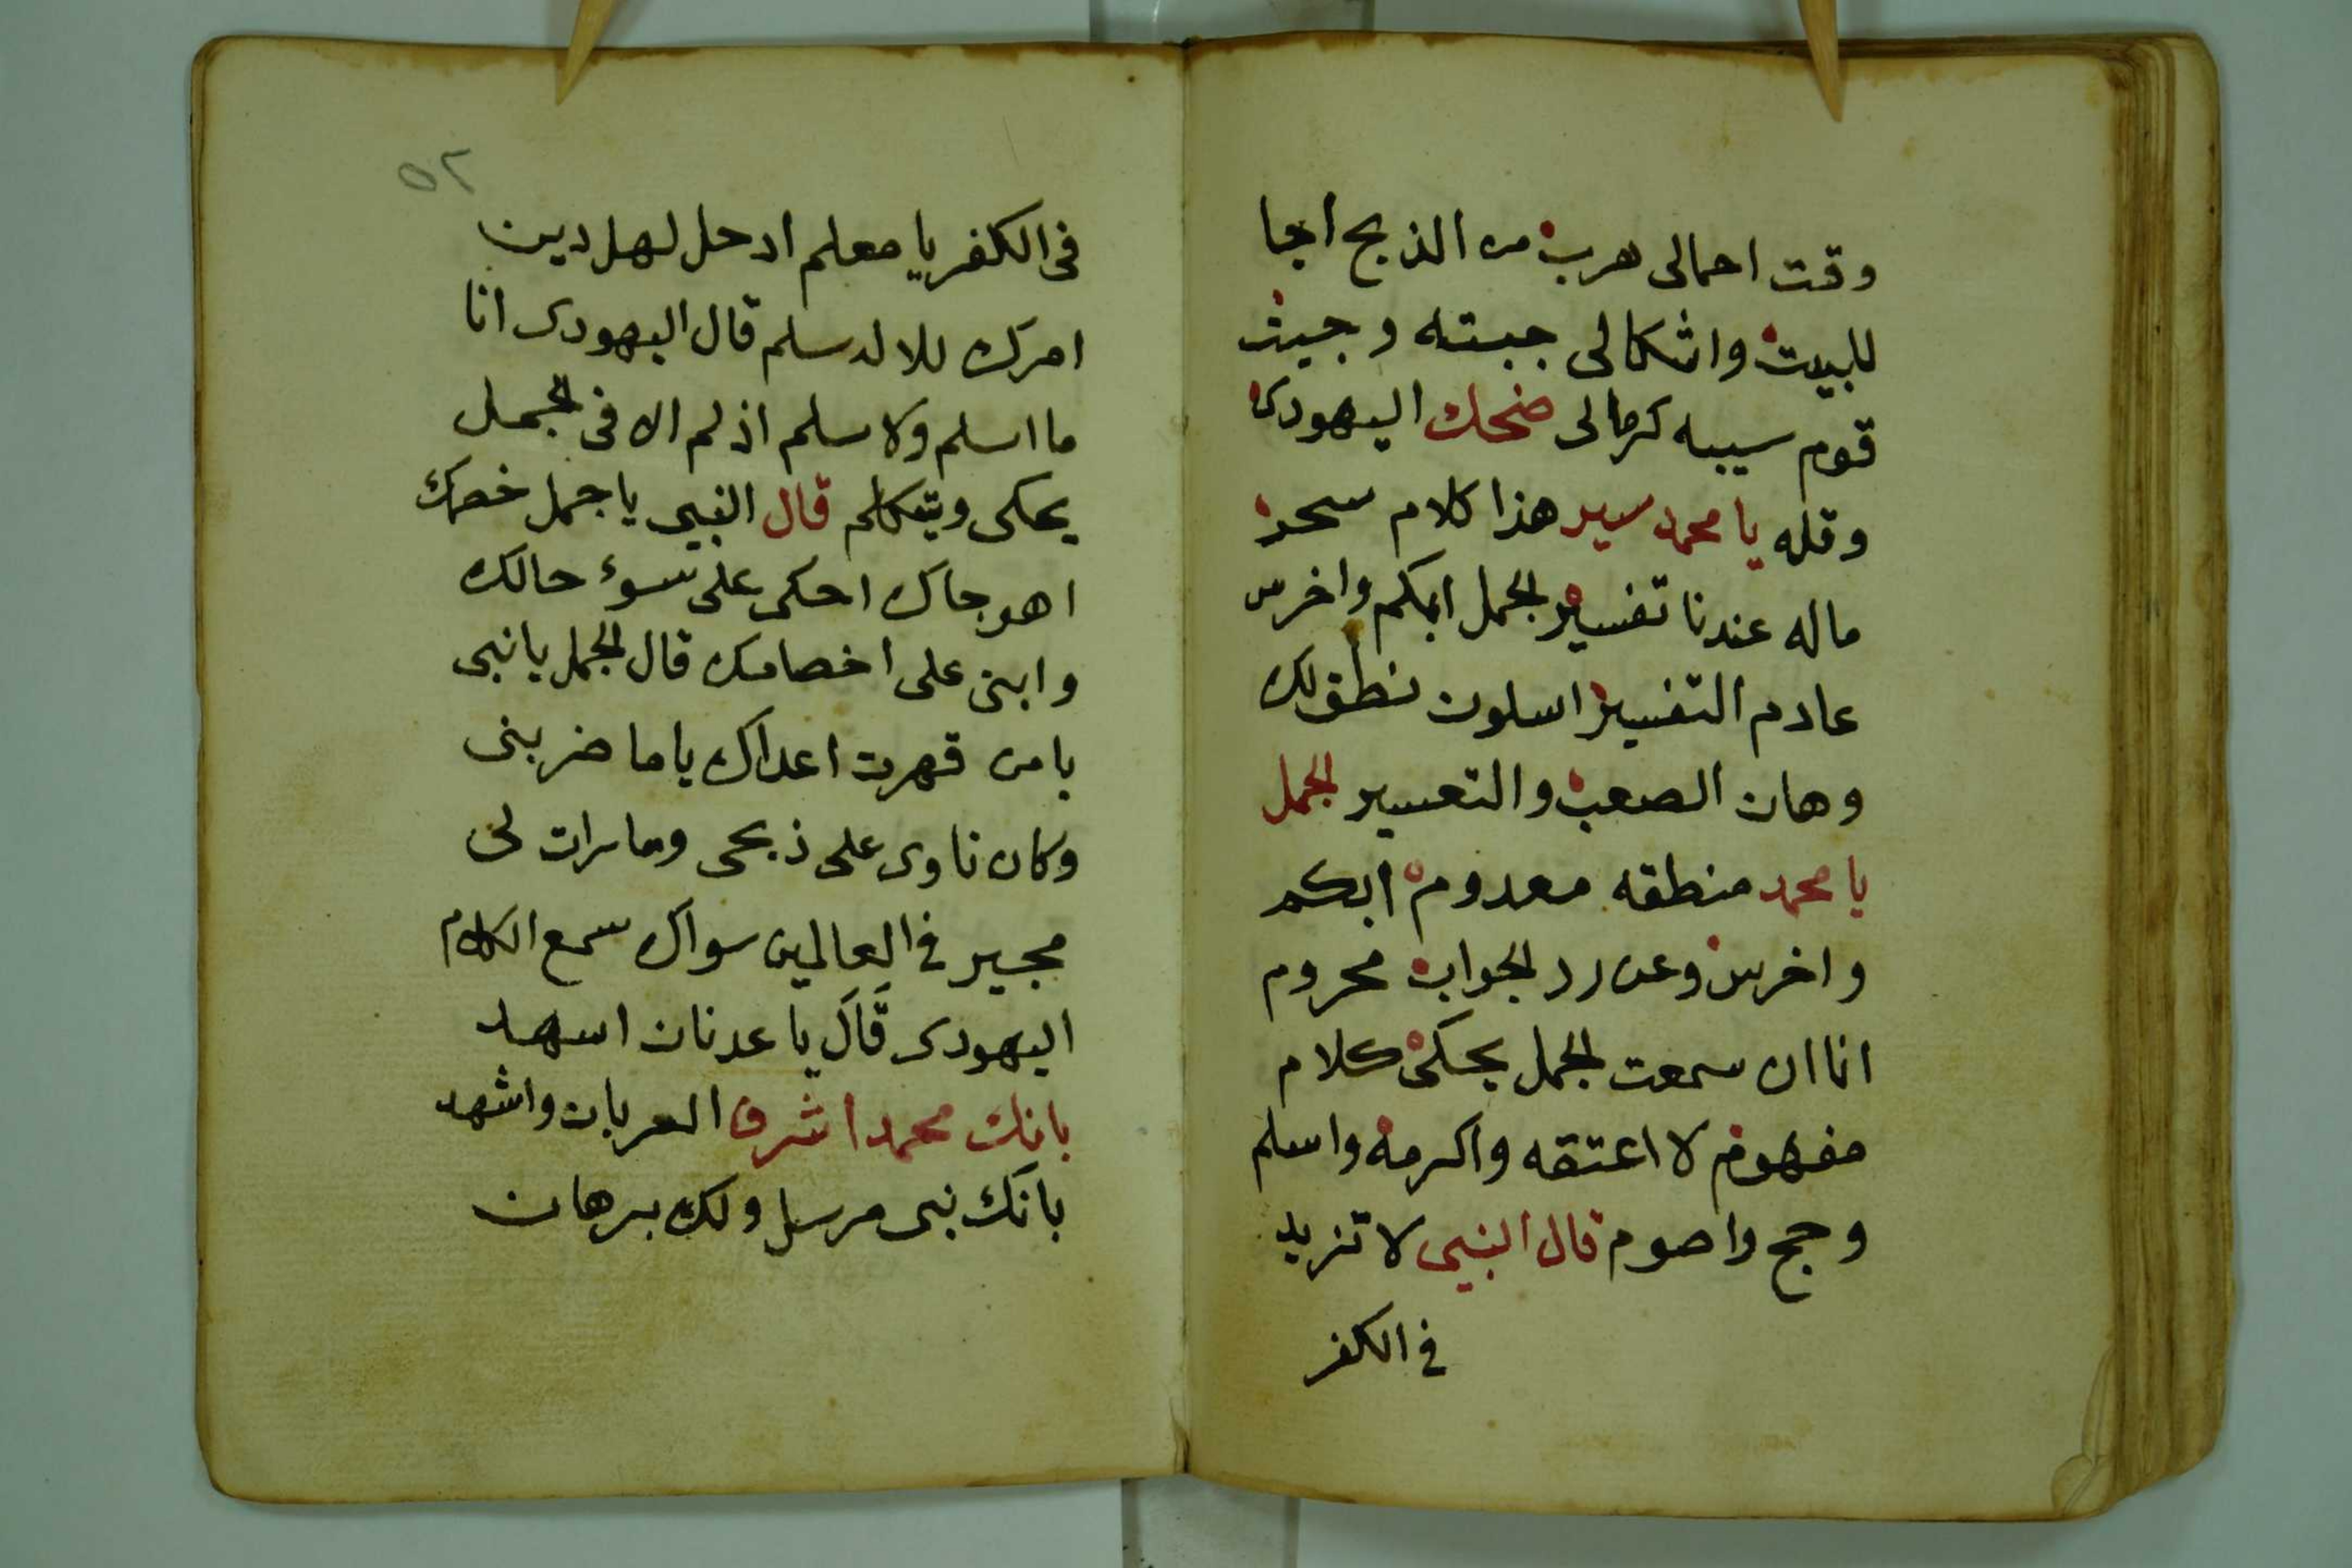 وقت احمالى هرب من الذبح اجا
للبيت واشكالى جبته وجيت
قوم سيبه كرمالى ضحك اليهودى
وقله يا محمد سير هذا كلام سحر
ماله عندنا تفسير الجمل ابكم واخرس
عادم التفسير اسلون نطق لك
وهان الصعب والتعسير الجمل
يا محمد منطقه معدوم ابكم
واخرس وعن رد الجواب محروم
انا ان سمعت الجمل يحكى كلام
مفهوم لا اعتقه واكرمه واسلم
وحج واصوم قال النبى لا تزيد
فى الكفر
٥٢
فى الكفر يا معلم ادحل لهل دين
امرك للاله سلم قال اليهودى انا
ما اسلم ولا سلم اذ لم الا فى الجمل
يحكى ويتكلم قال النبي يا جمل خصمك
اهو جاك احكى على سوء حالك
وابنى على اخصامك قال الجمل يا نبى
يا من قهرت اعداك ياما ضربنى
وكان ناوى على ذبحى وما رات لى
مجير فى العالمين سواك سمع الكلام
اليهودى قال يا عدنان اسهد
بانك محمد اشرف العربان واشهد
بانك نبى مرسل ولك برهان